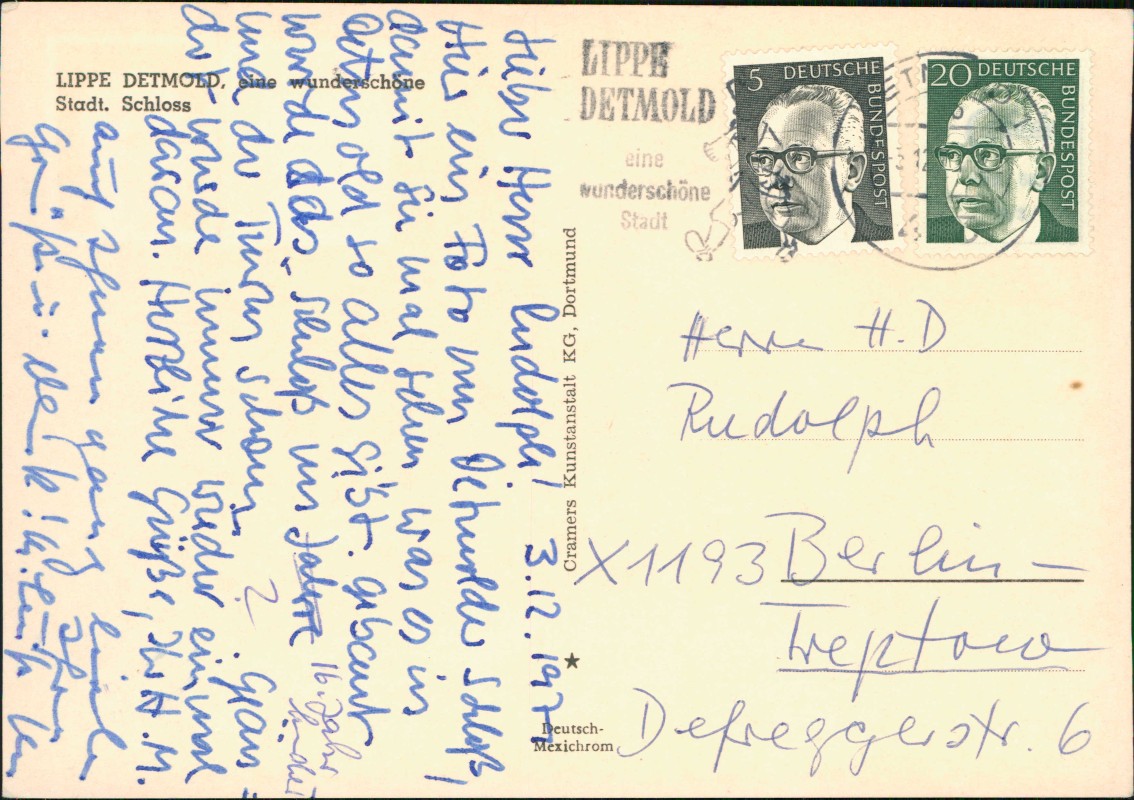 LIPPE DETMOLD, eine wunderschöne
Stadt. Schloss
Lieber Herr Rudolph! 3.12.197
Hier ein Foto vom Detmolder Schloß,
damit Sie mal sehen was es in
Detmold so alles gibt. Gebaut
wurde das Schloß im Jahre 16. Jahr
hundert
und der Turm schon ?. Gran=
dot wurde immer wieder einmal
daran. Herzliche Grüße, Ihr H. M.
auch Ihnen ganz
LIPPE
DETMOLD
eine
wunderschöne
Stadt
5 DEUTSCHE
BUNDESPOST
20 DEUTSCHE
BUNDESPOST
Herrn H.D
Rudolph
X1193 Berlin -
Treptow
Defreggerstr. 6
Cramers Kunstanstalt KG, Dortmund
Deutsch-
Mexichrom